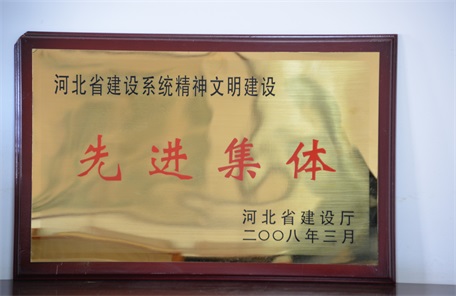 河北省建设系统精神文明建设
先进集体
河北省建设厅
二〇〇八年三月